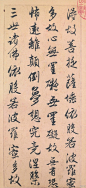 得故菩提薩埵依般若波羅蜜
多故心無罣礙無罣礙故無有恐
怖遠離顛倒夢想究竟涅槃
三世諸佛依般若波羅蜜多故